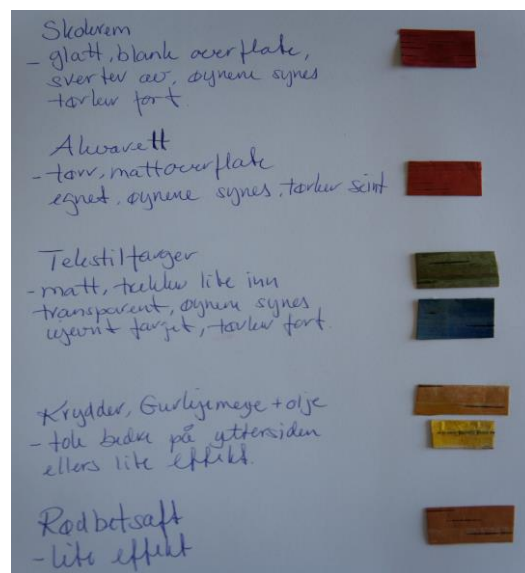 Skokrem
- glatt, blank overflate,
sverter av, øynene synes
tørker fort.
Akvarell
- tørr, mattoverflate
egnet, øynene synes, tørker seint
Tekstilfarger
- matt, trekker lite inn
transparent, øynene synes
ujevnt farget, tørker fort.
Krydder, Gurkemeye + olje
- tok bedre på yttersiden
ellers lite effekt.
Rødbetsaft
- lite effekt